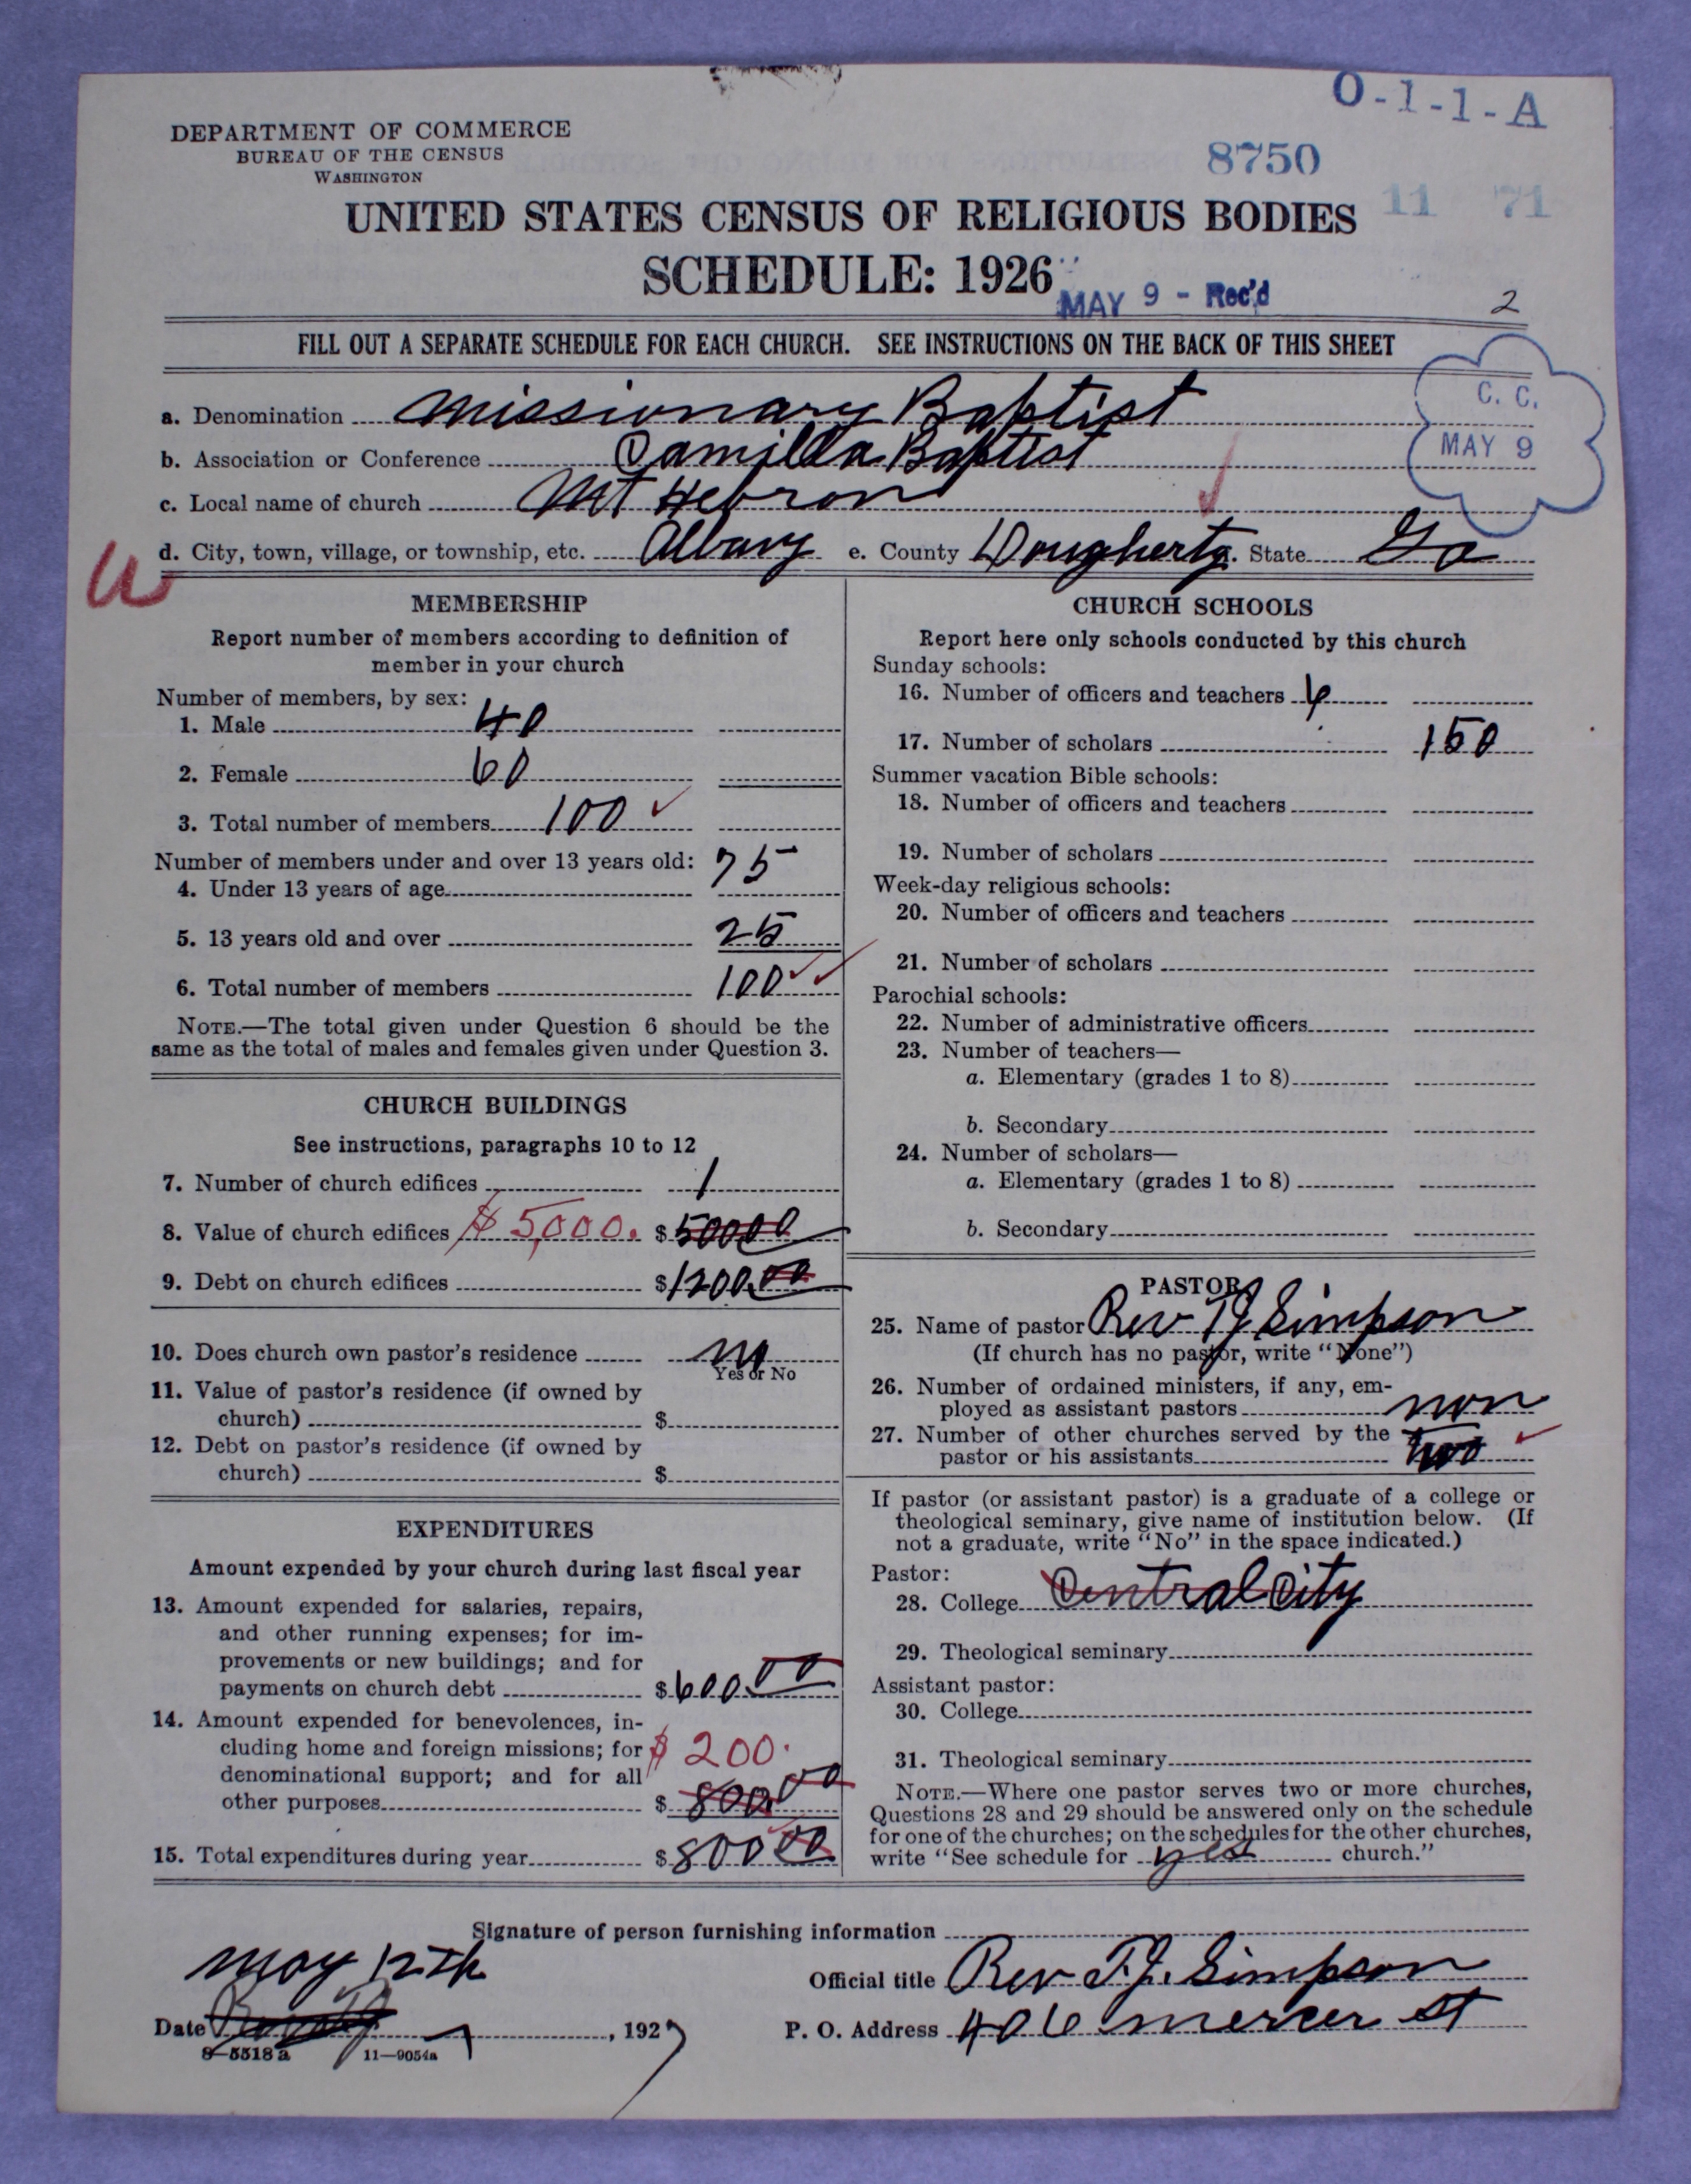 O-1-1-A
DEPARTMENT OF COMMERCE
BUREAU OF THE CENSUS
WASHINGTON
8750
11 71
UNITED STATES CENSUS OF RELIGIOUS BODIES
SCHEDULE: 1926
MAY 9 - Rec'd
2
FILL OUT A SEPARATE SCHEDULE FOR EACH CHURCH. SEE INSTRUCTIONS ON THE BACK OF THIS SHEET
C. C.
MAY 9
a. Denomination Missionary Baptist
b. Association or Conference Camilla Baptist
c. Local name of church Mt Hebron
d. City, town, village, or township, etc. Albany e. County Dougherty. State Ga
MEMBERSHIP
Report number of members according to definition of
member in your church
Number of members, by sex:
1. Male 40
2. Female 60
3. Total number of members 100 ✓
Number of members under and over 13 years old:
4. Under 13 years of age 75
5. 13 years old and over 25
6. Total number of members 100 ✓✓
NOTE.—The total given under Question 6 should be the
same as the total of males and females given under Question 3.
CHURCH BUILDINGS
See instructions, paragraphs 10 to 12
7. Number of church edifices 1
8. Value of church edifices $5,000. $ 50000
9. Debt on church edifices $1200.00
10. Does church own pastor's residence no
Yes or No
11. Value of pastor's residence (if owned by
church) $
12. Debt on pastor's residence (if owned by
church) $
EXPENDITURES
Amount expended by your church during last fiscal year
13. Amount expended for salaries, repairs,
and other running expenses; for im-
provements or new buildings; and for
payments on church debt $ 600.00
14. Amount expended for benevolences, in-
cluding home and foreign missions; for $ 200.
denominational support; and for all
other purposes $ 800.00
15. Total expenditures during year $ 800 00
CHURCH SCHOOLS
Report here only schools conducted by this church
Sunday schools:
16. Number of officers and teachers
17. Number of scholars 150
Summer vacation Bible schools:
18. Number of officers and teachers
19. Number of scholars
Week-day religious schools:
20. Number of officers and teachers
21. Number of scholars
Parochial schools:
22. Number of administrative officers
23. Number of teachers—
a. Elementary (grades 1 to 8)
b. Secondary
24. Number of scholars—
a. Elementary (grades 1 to 8)
b. Secondary
PASTOR
25. Name of pastor Rev T J Simpson
(If church has no pastor, write "None")
26. Number of ordained ministers, if any, em-
ployed as assistant pastors non
27. Number of other churches served by the
pastor or his assistants two ✓
If pastor (or assistant pastor) is a graduate of a college or
theological seminary, give name of institution below. (If
not a graduate, write "No" in the space indicated.)
Pastor:
28. College Central City
29. Theological seminary
Assistant pastor:
30. College
31. Theological seminary
NOTE.—Where one pastor serves two or more churches,
Questions 28 and 29 should be answered only on the schedule
for one of the churches; on the schedules for the other churches,
write "See schedule for yes church."
Signature of person furnishing information
May 12th
Official title Rev T. J. Simpson
Date , 1927
P. O. Address 406 Mercer St
8—5518 a 11—9054a